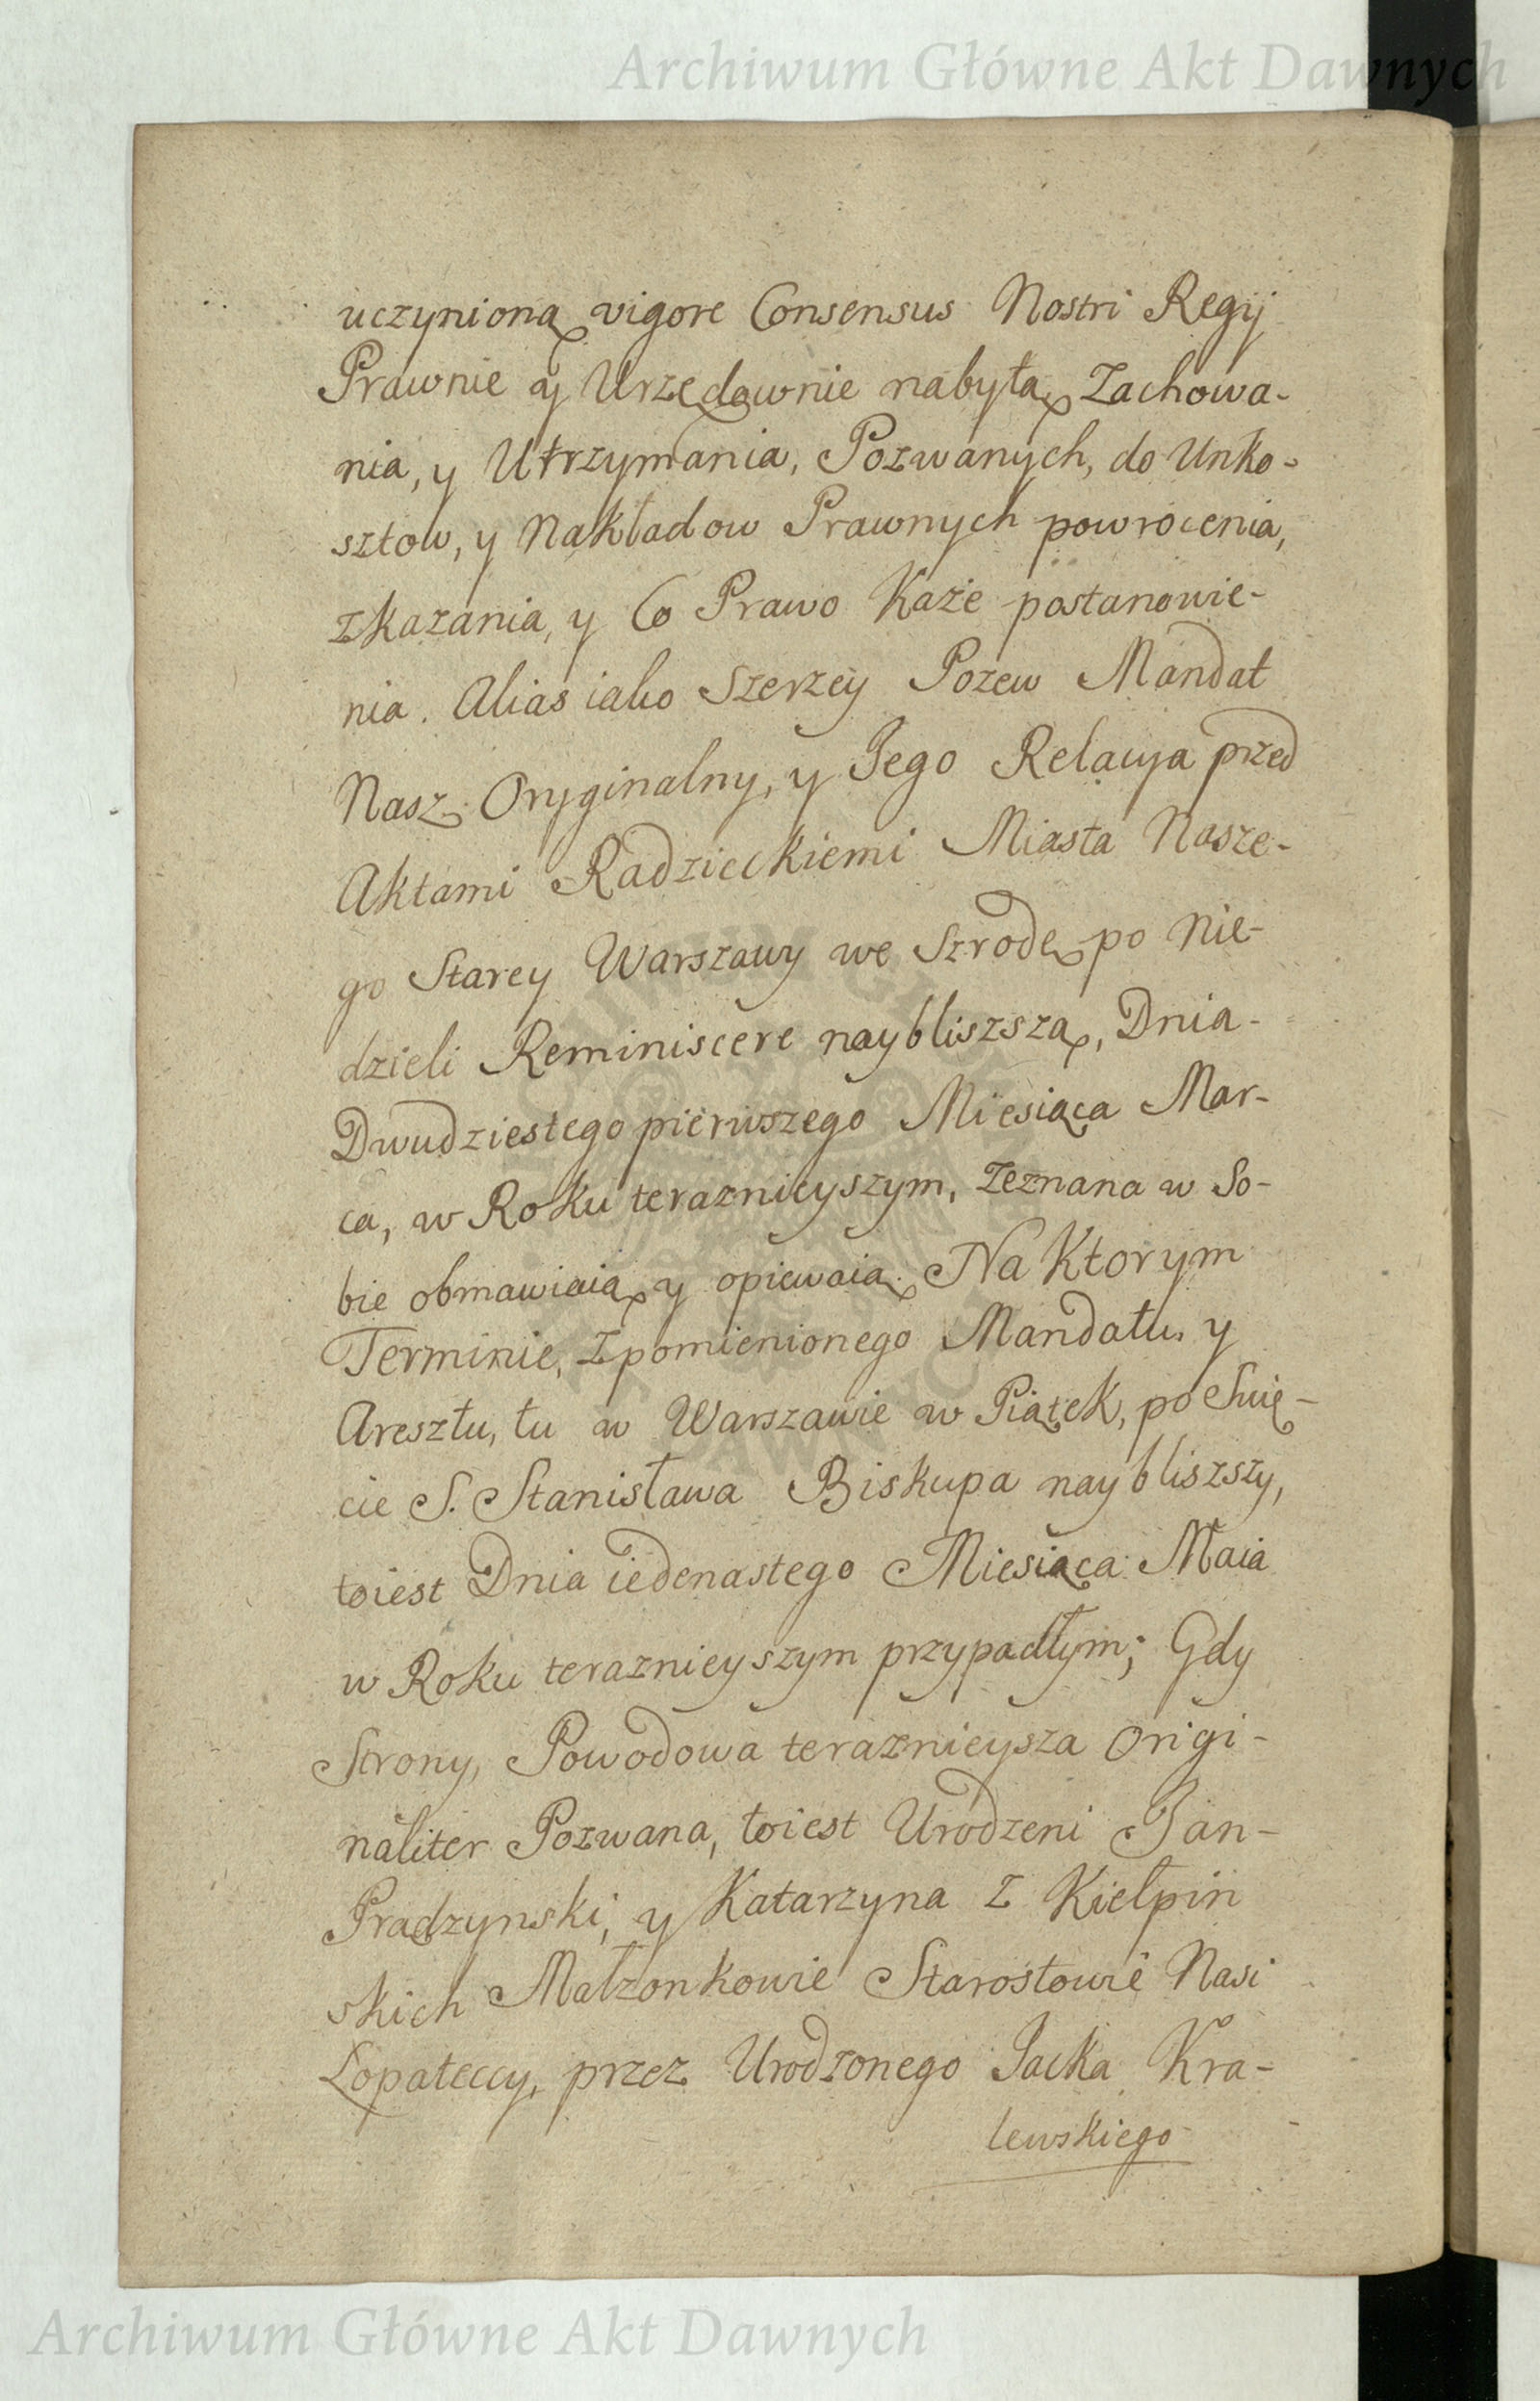 Archiwum Główne Akt Dawnych
uczynioną vigore Consensus Nostri Regij
Prawnie y Urzędownie nabytą, Zachowa-
nia, y Utrzymania, Pozwanych, do Unko-
sztow, y Nakładow Prawnych powrocenia,
zkazania, y Co Prawo Każe postanowie-
nia. Alias iako Szerzey Pozew Mandat
Nasz Oryginalny, y Jego Relacya przed
Aktami Radzieckiemi Miasta Nasze-
go Starey Warszawy we Szrodę po Nie-
dzieli Reminiscere naybliszszą, Dnia
Dwudziestego pierwszego Miesiąca Mar-
ca, w Roku teraznieyszym, Zeznana w So-
bie obmawiaią y opiewaią. Na Ktorym
Terminie, z pomienionego Mandatu y
Aresztu, tu w Warszawie w Piątek, po Swię-
cie S. Stanisława Biskupa naybliszszy,
toiest Dnia iedenastego Miesiąca Maia
w Roku teraznieyszym przypadłym; Gdy
Strony, Powodowa teraznieysza Origi-
naliter Pozwana, toiest Urodzeni Jan
Prądzynski, y Katarzyna z Kiełpin
skich Małzonkowie Starostowie Nasi
Łopateccy, przez Urodzonego Jacka Kra-
lewskiego
Archiwum Główne Akt Dawnych